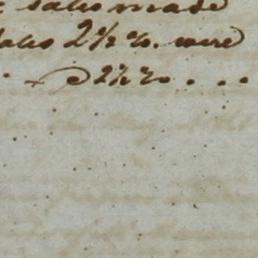 sales made
Sales 2½ %. were
2½ %. . . .